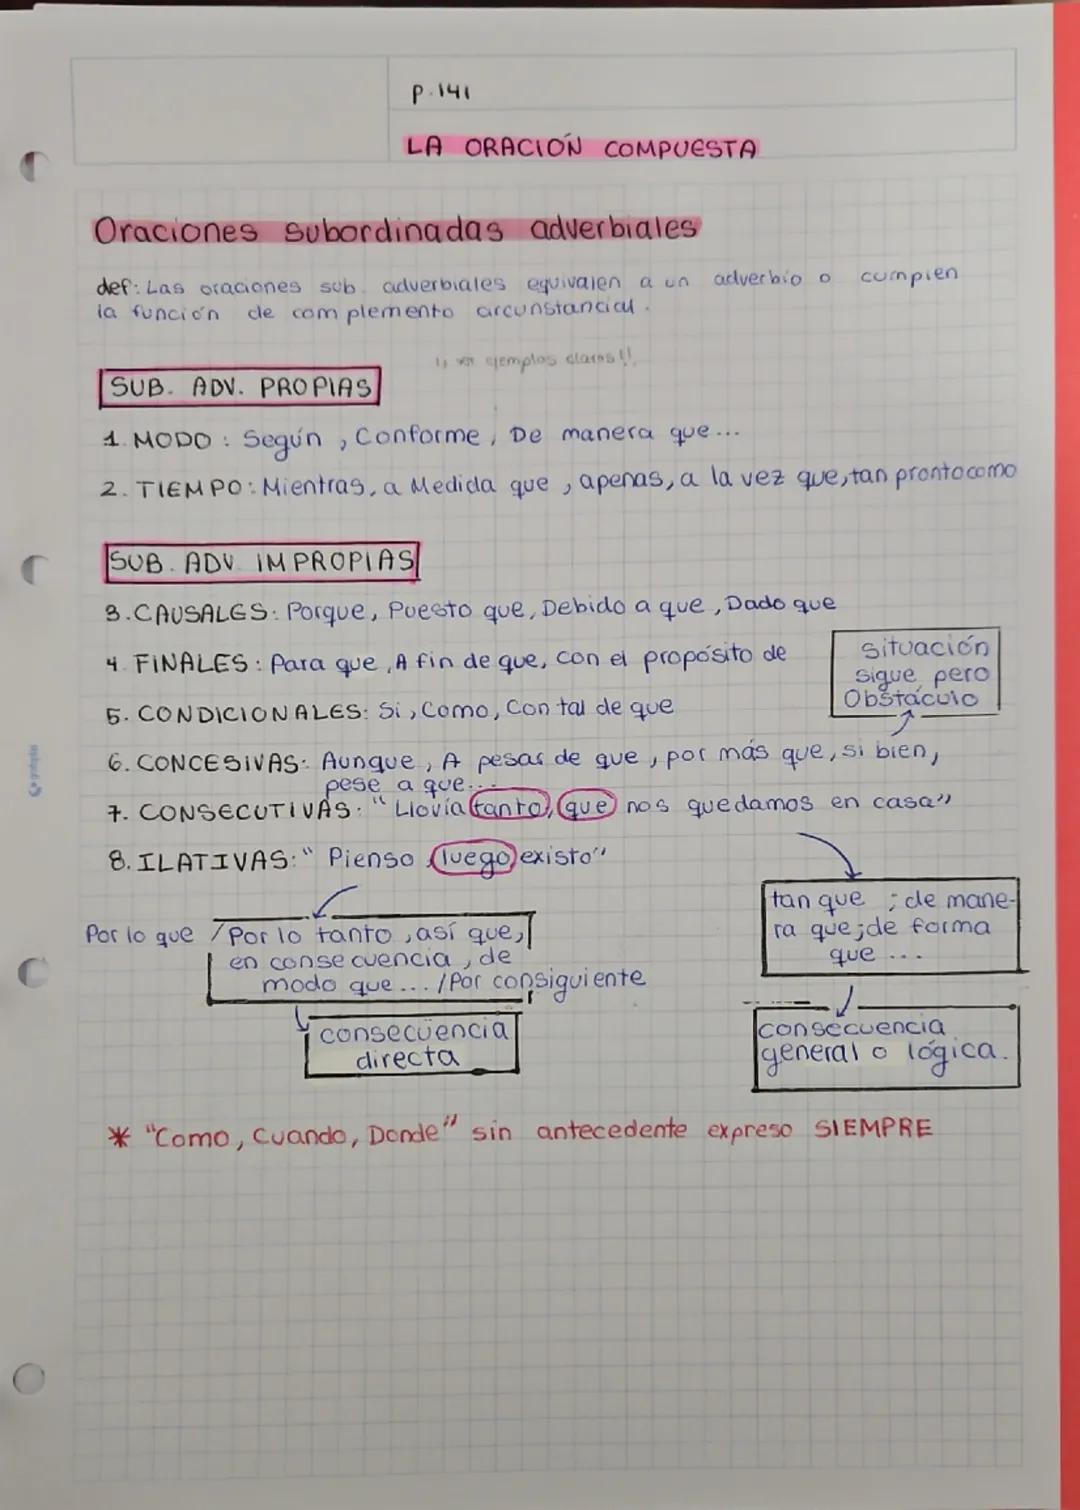 p.141
LA ORACIÓN COMPUESTA
Oraciones subordinadas adverbiales
def: Las oraciones sub. adverbiales equivalen a un adverbio o cumplen
la función de complemento circunstancial.
ejemplos claros!!
SUB. ADV. PROPIAS
1. MODO: Según, Conforme, De manera que...
2. TIEMPO: Mientras, a Medida que, apenas, a la vez que, tan pronto como
SUB. ADV. IMPROPIAS
3. CAUSALES: Porque, Puesto que, Debido a que, Dado que
4. FINALES: Para que, A fin de que, con el propósito de
situación
sigue, pero
Obstáculo
5. CONDICIONALES: Si, Como, Con tal de que
6. CONCESIVAS: Aunque, A pesar de que, por más que, si bien,
pese a que...
7. CONSECUTIVAS: "Llovía tanto, que nos quedamos en casa"
8. ILATIVAS: "Pienso, luego existo"
tan que ; de mane-
ra que; de forma
que ...
Por lo que / Por lo tanto, así que,
en consecuencia, de
modo que ... / Por consiguiente
consecuencia
directa
consecuencia
general o lógica.
* "Como, Cuando, Donde" sin antecedente expreso SIEMPRE